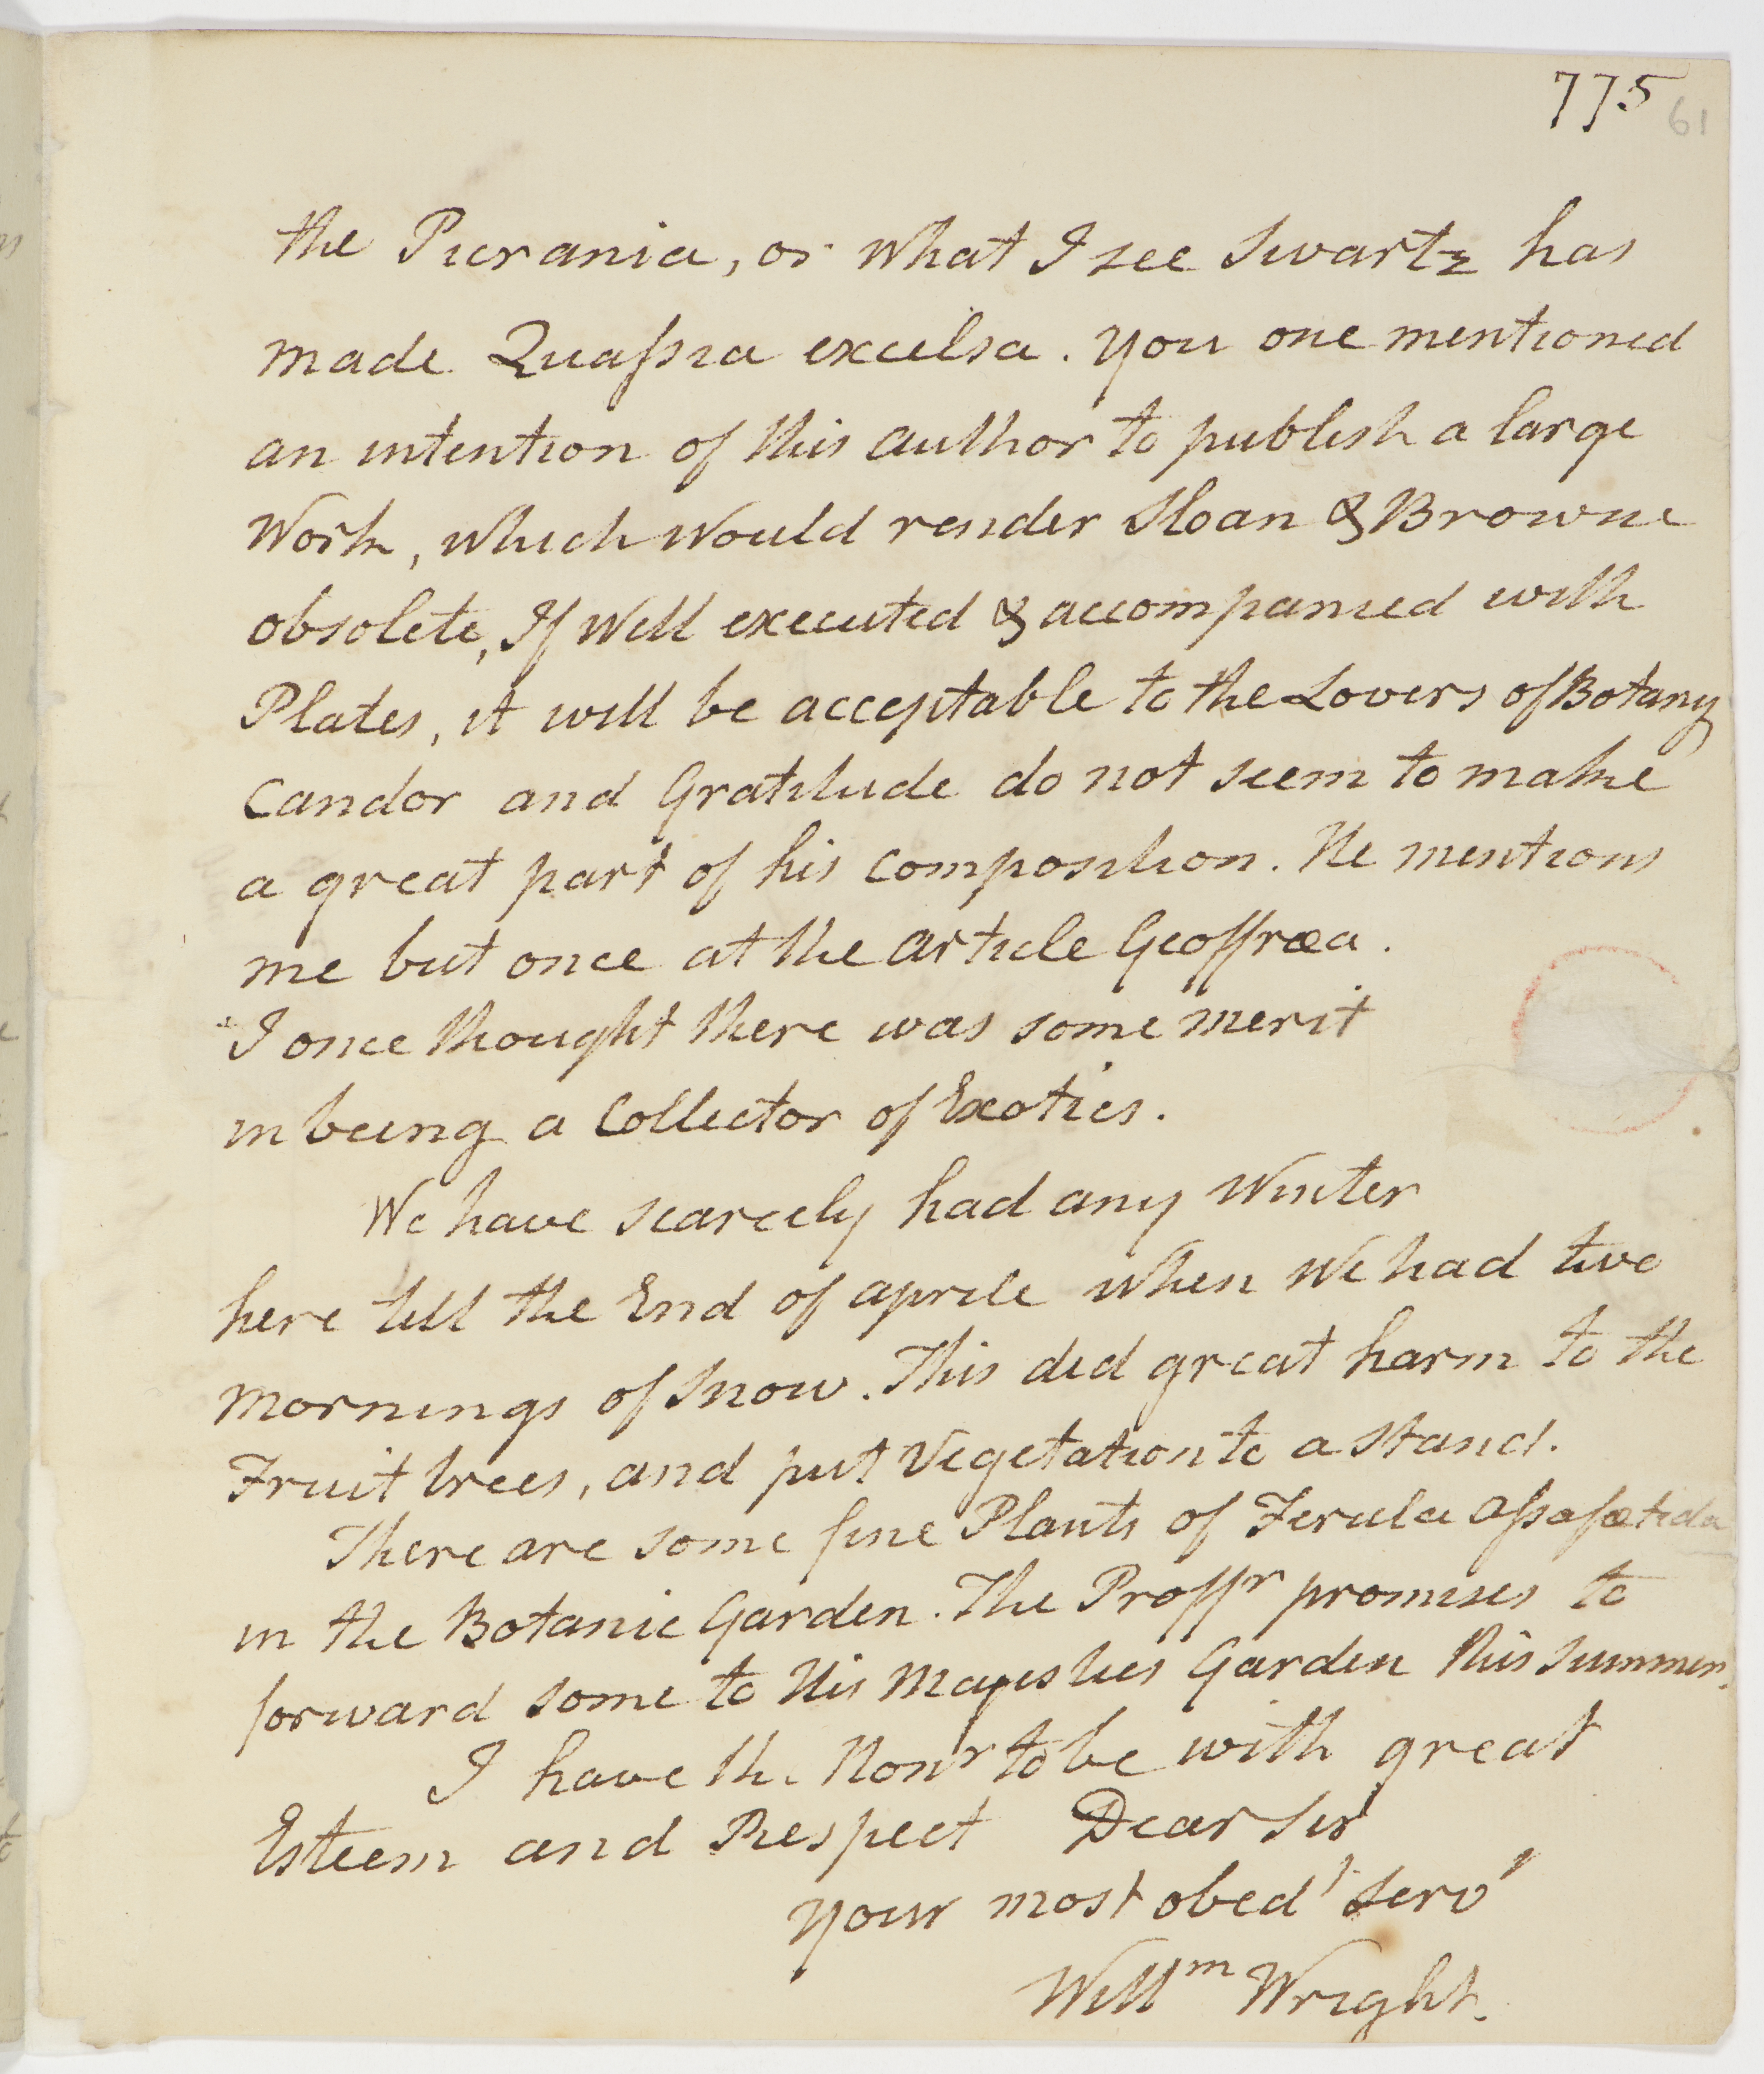 775
61
the Picrania, or what I see Swartz has
made Quaſsia excelsa. you one mentioned
an intention of this author to publish a large
Work, which Would render Sloan & Browne
obsolete, If Well executed & accompanied with
Plates, it will be acceptable to the Lovers of Botany
Candor and Gratitude do not seem to make
a great part of his Composition. He mentions
me but once at the article Geoffræa.
I once thought there was some merit
in being a Collector of Exotics.
We have scarcely had any Winter
here till the End of aprile when We had two
Mornings of Snow. This did great harm to the
Fruit trees, and put Vegetation to a Stand.
There are some fine Plants of Ferula Aſsafœtida
in the Botanic Garden. The Proffr promises to
forward some to His Majesties Garden this Summer.
I have the Honr to be with great
Esteem and Respect Dear Sir
your most obedt Servt
Willm Wright.